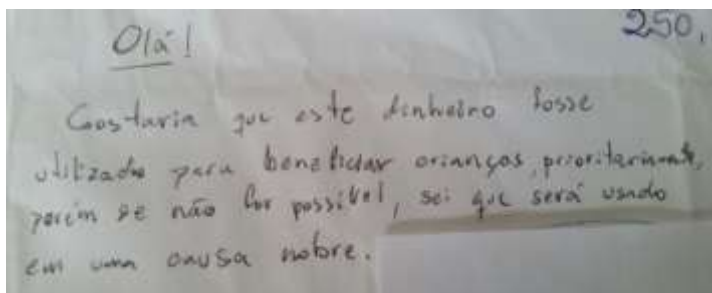 250,
Olá!
Gostaria que este dinheiro fosse
utilizado para beneficiar crianças, prioritariamente,
porém se não for possível, sei que será usado
em uma causa nobre.